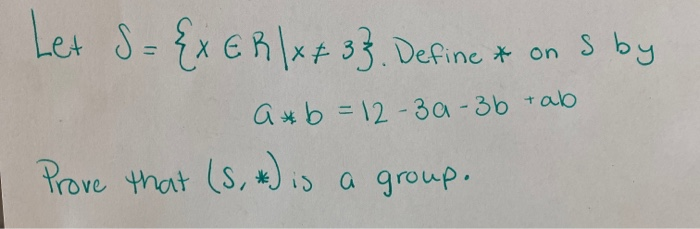 Let S = {x ∈ R | x ≠ 3}. Define * on S by
a * b = 12 - 3a - 3b + ab
Prove that (S, *) is a group.